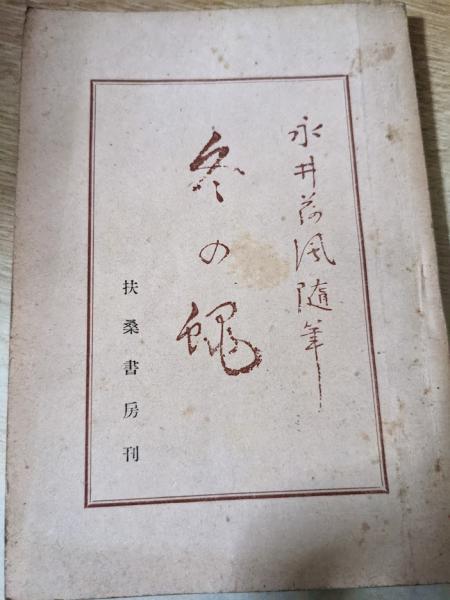 永井荷風随筆
冬の蠅
扶桑書房刊